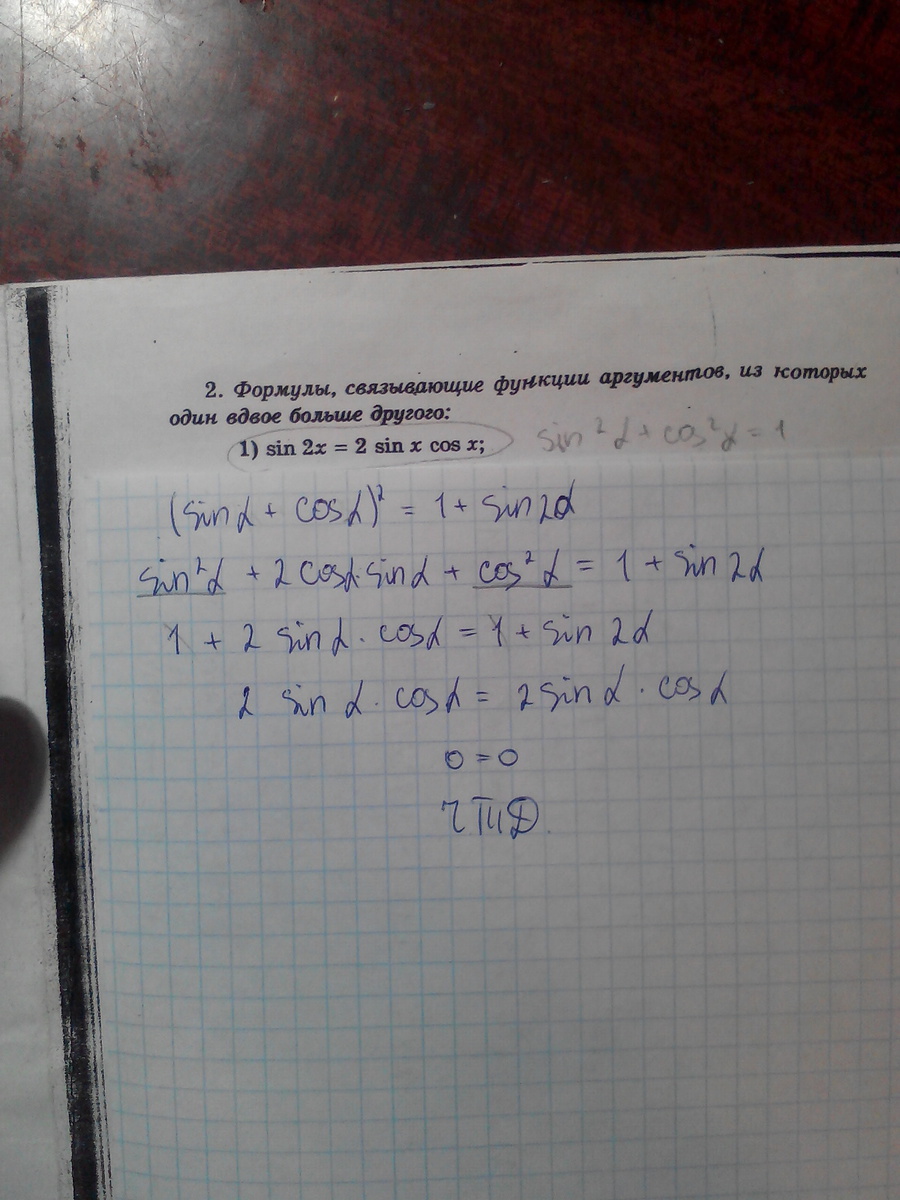 2. Формулы, связывающие функции аргументов, из которых
один вдвое больше другого:
1) sin 2x = 2 sin x cos x; sin²α + cos²α = 1
(sinα + cosα)² = 1 + sin2α
sin²α + 2 cosα·sinα + cos²α = 1 + sin 2α
1 + 2 sinα · cosα = 1 + sin 2α
2 sin α · cosα = 2 sin α · cos α
0 = 0
ЧТД.